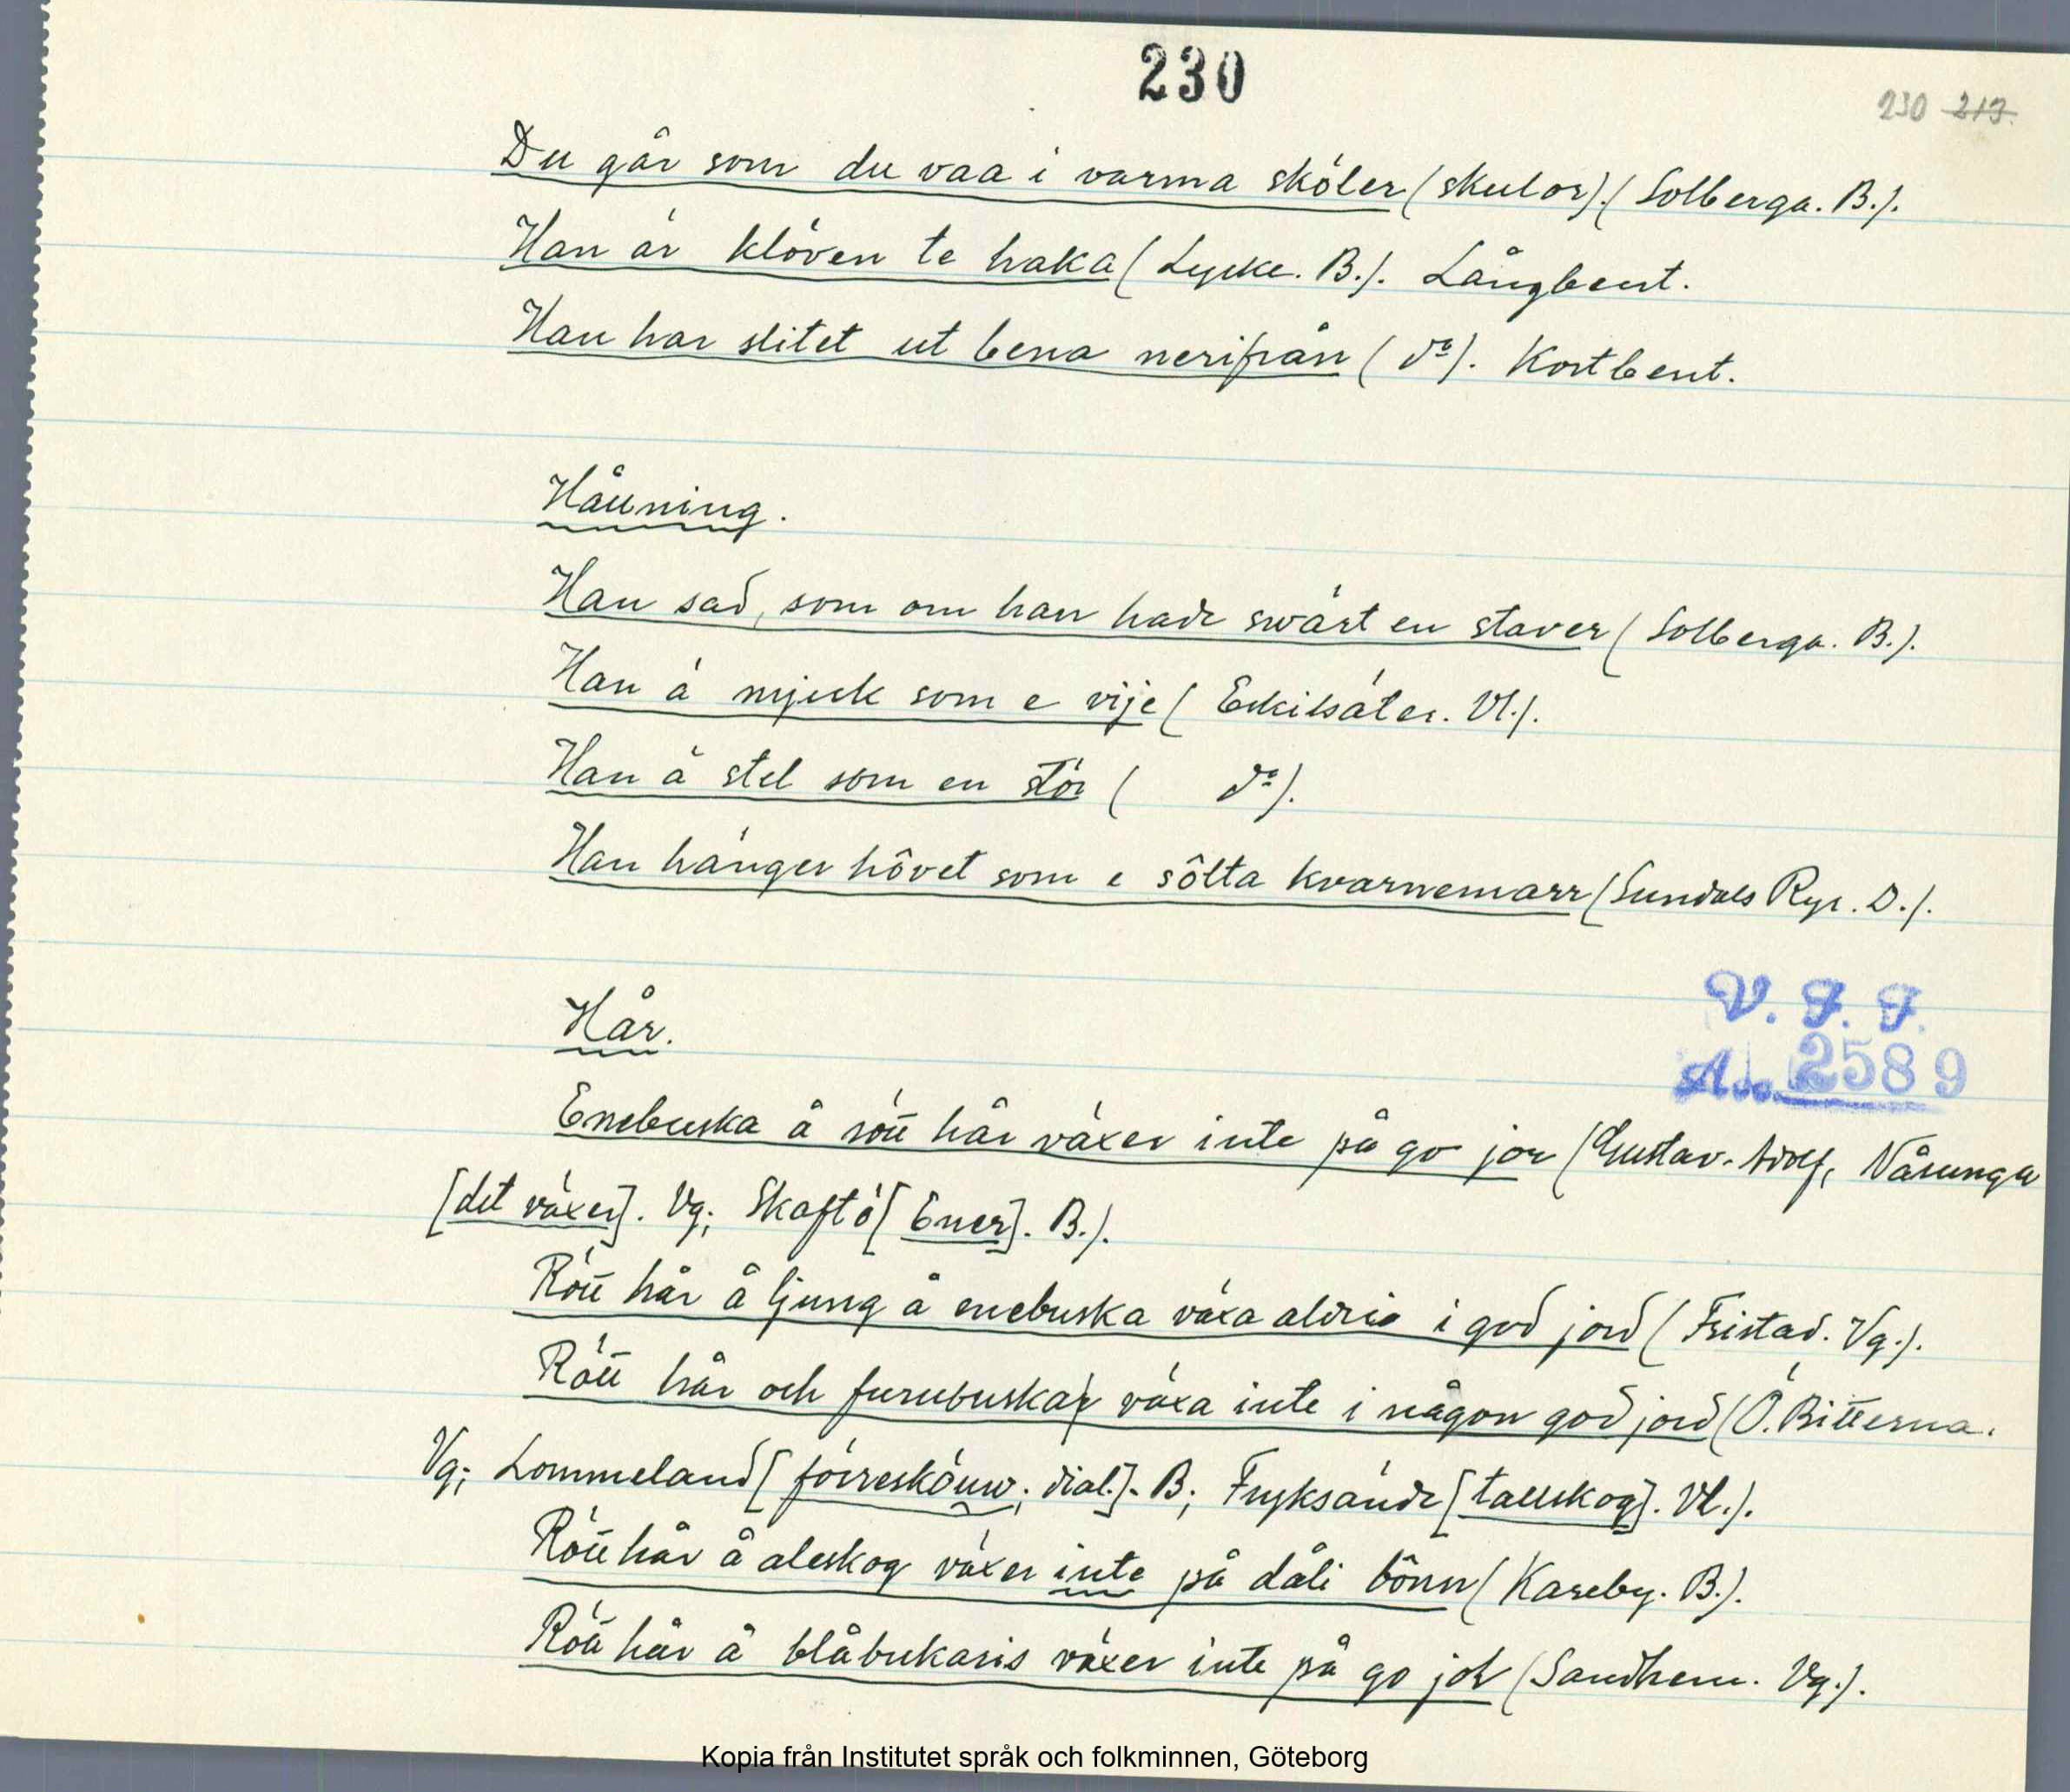 230
230 213.
Du går som du vaa i varma sköler (skulor). (Solberga. B.).
Han är klöven te haka (Lycke. B.). Långbent.
Han har slitet ut bena nerifrån (do). Kortbent.
Hållning.
Han sad, som om han hade swäst en staver (Solberga. B.).
Han ä mjuk som e vije (Eskilsäter. Vl.).
Han ä stel som en stör ( do).
Han hänger hôvet som e sôlta kvarnemarr (Sundals Ryr. D.).
Hår.
V. F. F.
Acc. 2589
Enebuska å rött hår växer inte på go jor (Gustav-Adolf, Nårunga
[det växer]. Vg; Skaftö [Ener]. B.).
Rött hår å ljung å enebuska växa aldrig i god jord (Fristad. Vg.).
Rött hår och furubuskar växa inte i någon god jord (Ö. Bitterna.
Vg; Lommeland [förreskôuw; dial.]. B; Fryksände [tallskog]. Vl.).
Rött hår å aleskog växer inte på dåli bônn (Kareby. B.).
Rött hår å blåbukaris växer inte på go joL (Sandhem. Vg.).
Kopia från Institutet språk och folkminnen, Göteborg